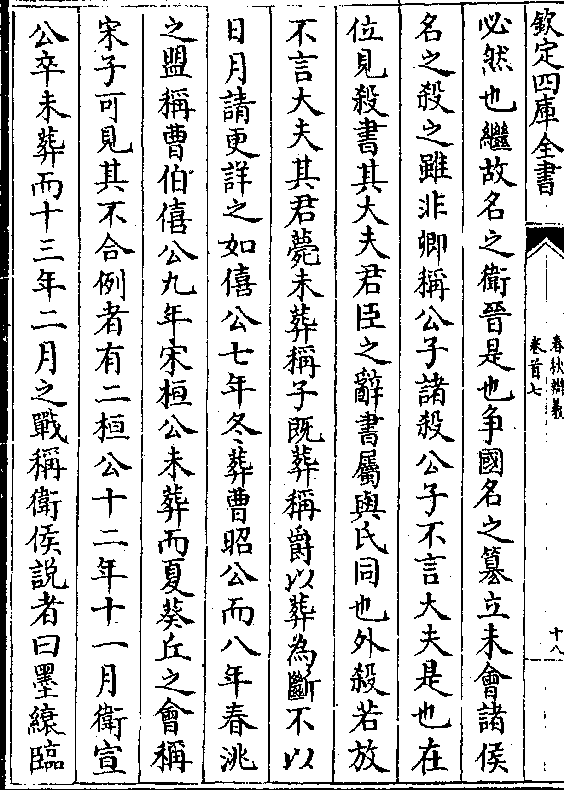 欽定四庫全書
春秋辯義
卷首七
十八
必然也繼故名之衛晉是也争國名之篡立未會諸侯
名之殺之雖非卿稱公子諸殺公子不言大夫是也在
位見殺書其大夫君臣之辭書屬與氏同也外殺若放
不言大夫其君薨未葬稱子既葬稱爵以葬為斷不以
日月請更詳之如僖公七年冬葬曹昭公而八年春洮
之盟稱曹伯僖公九年宋桓公未葬而夏葵丘之會稱
宋子可見其不合例者有二桓公十二年十一月衛宣
公卒未葬而十三年二月之戰稱衛侯說者曰墨縗臨